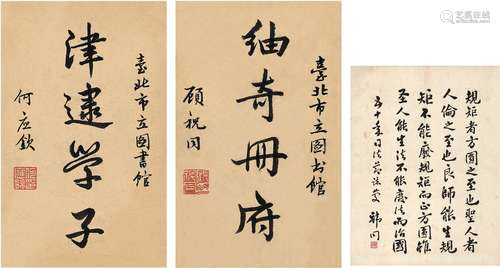 臺北市立圖書館
津逮學子
何应欽
臺北市立圖书館
紬奇冊府
顧祝同
規矩者方圓之至也聖人者
人倫之至也良師能生規
矩不能廢規矩而正方圓雖
圣人能生法不能廢法而治國
五十年司法